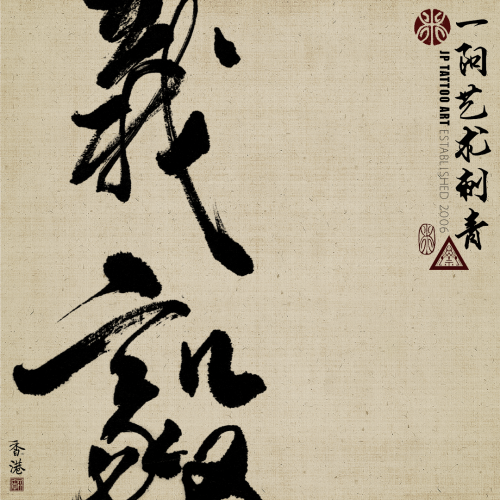 一阳艺术刺青
JP TATTOO ART ESTABLISHED 2006
義毅
香港